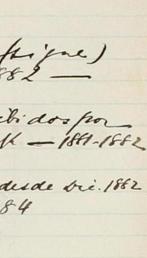 (sigue)
882 —
ibidos por
K — 1881-1882
desde Dic. 1882
84